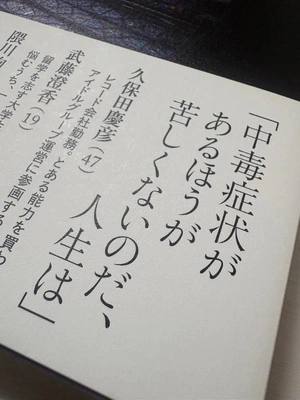 「中毒症状が
あるほうが
苦しくないのだ、
人生は」
久保田慶彦（47）
レコード会社勤務。とある能力を買わ
アイドルグループ運営に参画する
武藤澄香（19）
留学を志
悩むうち、す
大学
隅川